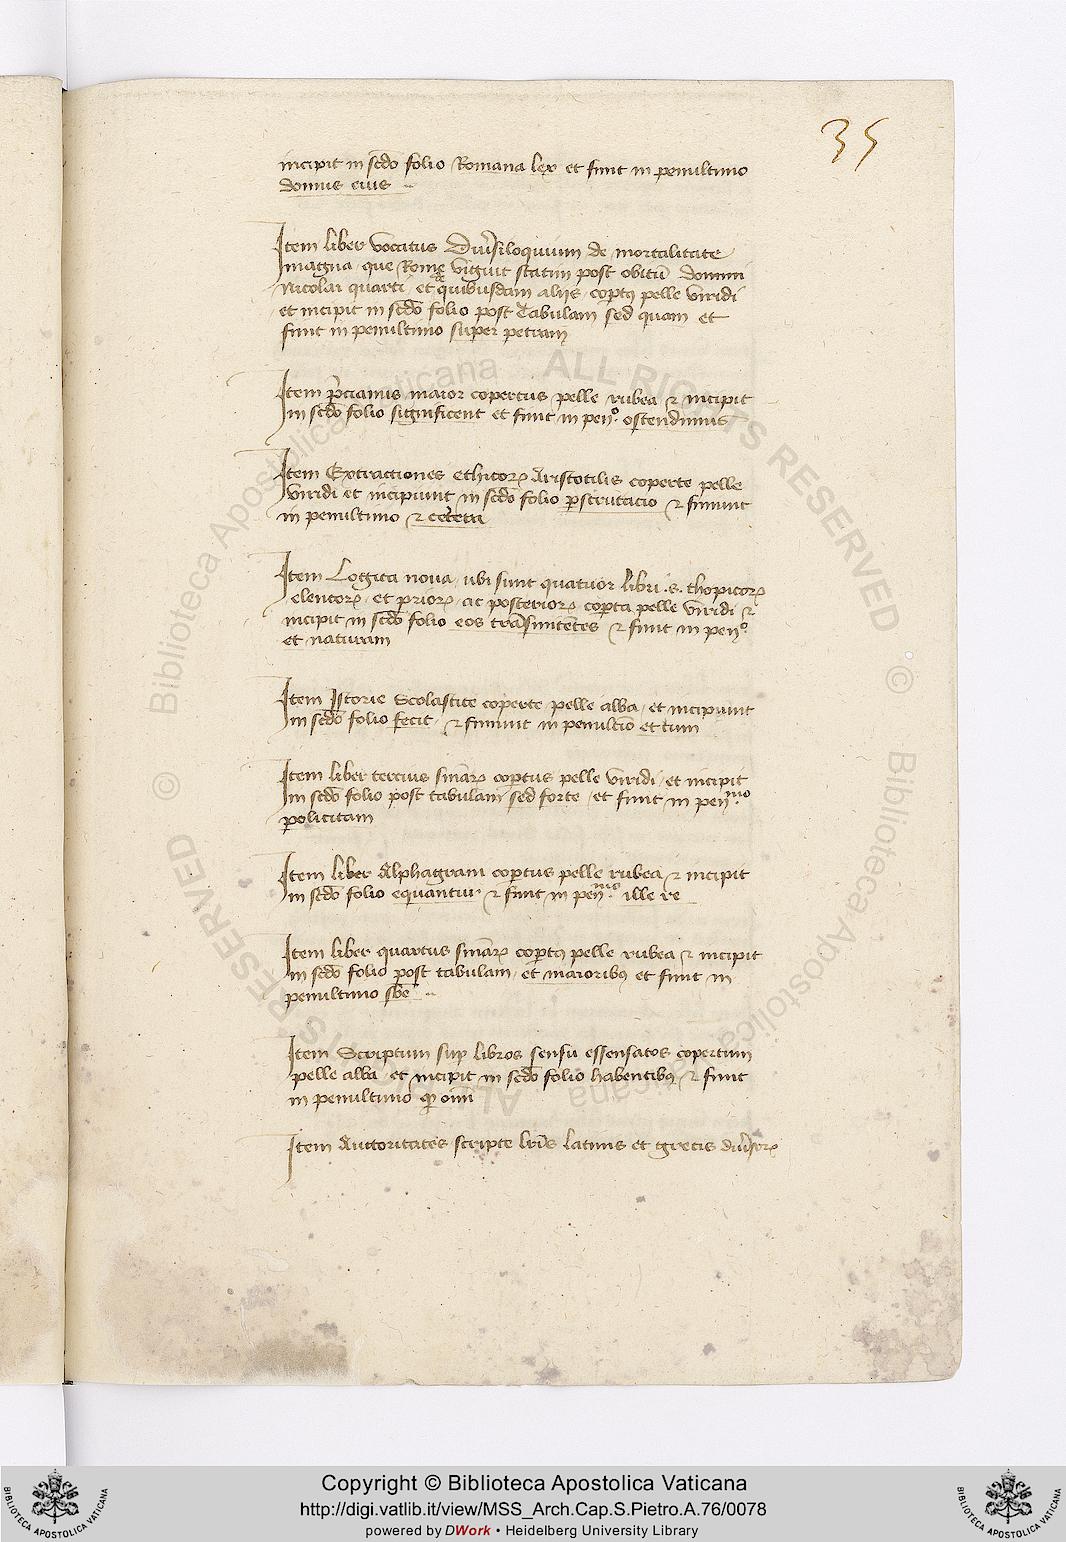 35
incipit in scdo folio Romana lex et finit in penultimo
domus eius
Item liber vocatus Diu'siloquium de mortalitate
magna que Rome viguit statim post obitū domini
Nicolai quarti et quibusdam aliis coptus pelle viridi
et incipit in scdo folio post tabulam sed quam et
finit in penultimo super petram
Item p'cianus maior copertus pelle rubea et incipit
in scdo folio significent et finit in pen.º ostendimus
Item Extractiones ethicor Aristotilis coperte pelle
viridi et incipiunt in scdo folio pscrutacio et finiunt
in penultimo et cetera
Item Logica nova ubi sunt quatuor libri .s. thopicor
elencor et prior ac posterior copta pelle viridi et
incipit in scdo folio eos et finit in pen.º
et naturam
Item Istorie Scolastice coperte pelle alba et incipiunt
in scdo folio fecit et finiunt in penultio et tum
Item liber tercius sniar coptus pelle viridi et incipit
in scdo folio post tabulam sed forte et finit in pen.mo
policitam
Item liber Alphagrani coptus pelle rubea et incipit
in scdo folio equantur et finit in pen.mo ille re
Item liber quartus sniar coptus pelle rubea et incipit
in scdo folio post tabulam et maioribus et finit in
penultimo sbe
Item Scriptum sup libros sensu essensatos copertum
pelle alba et incipit in scdo folio habentibus et finit
in penultimo qp oim
Item Auctoritates scripte lris latinis et grecis diu'sor
© Biblioteca Apostolica Vaticana ALL RIGHTS RESERVED © Biblioteca Apostolica Vaticana ALL RIGHTS RESERVED
Copyright © Biblioteca Apostolica Vaticana
http://digi.vatlib.it/view/MSS_Arch.Cap.S.Pietro.A.76/0078
powered by DWork • Heidelberg University Library
BIBLIOTECA APOSTOLICA VATICANA
BIBLIOTECA APOSTOLICA VATICANA